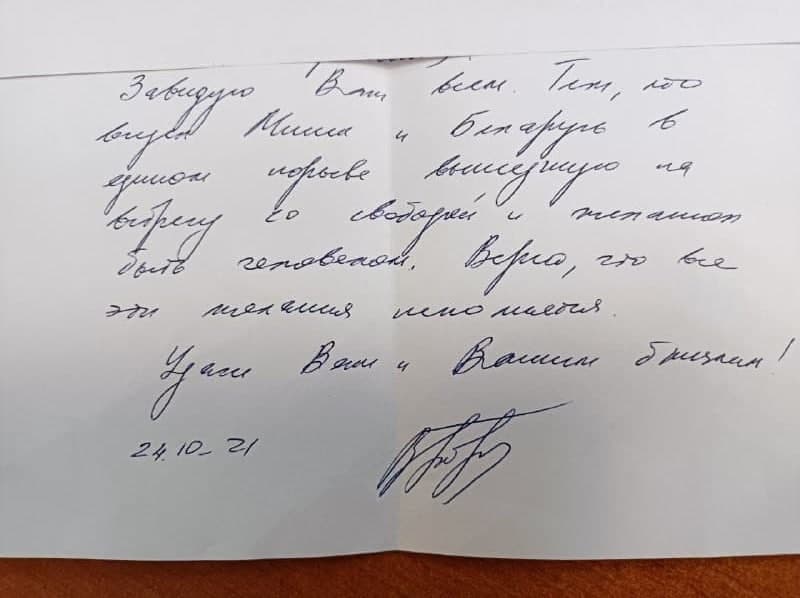 Завидую Вам всем. Тем, кто
видел Минск и Беларусь в
едином порыве вышедшую на
встречу со свободой и желанием
быть человеком. Верю, что все
эти желания исполнятся.
Удачи Вам и Вашим близким!
24.10-21